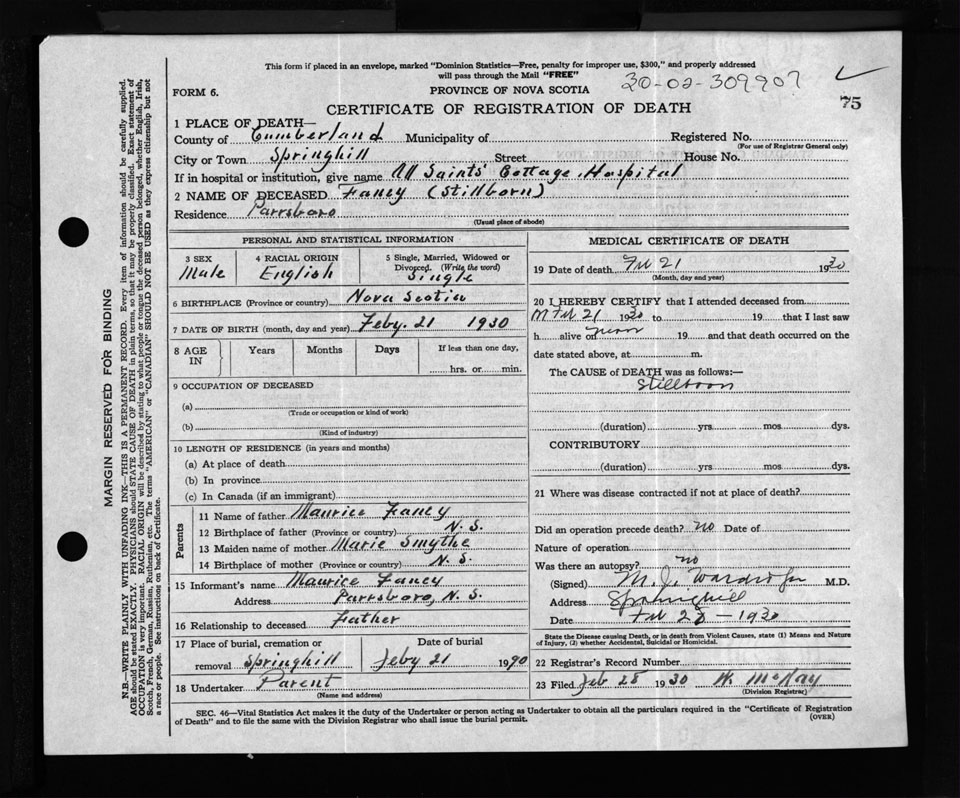 This form if placed in an envelope, marked "Dominion Statistics—Free, penalty for improper use, $300," and properly addressed
will pass through the Mail "FREE"
30-02-309907
FORM 6.
PROVINCE OF NOVA SCOTIA
75
CERTIFICATE OF REGISTRATION OF DEATH
1 PLACE OF DEATH—
County of Cumberland Municipality of Registered No.
(For use of Registrar General only)
City or Town Springhill Street House No.
If in hospital or institution, give name All Saints' Cottage Hospital
2 NAME OF DECEASED Fancy (Stillborn)
Residence Parrsboro
(Usual place of abode)
PERSONAL AND STATISTICAL INFORMATION
3 SEX 4 RACIAL ORIGIN 5 Single, Married, Widowed or
Divorced. (Write the word)
Male English Single
6 BIRTHPLACE (Province or country) Nova Scotia
7 DATE OF BIRTH (month, day and year) Feby. 21 1930
8 AGE IN Years Months Days If less than one day,
hrs. or min.
9 OCCUPATION OF DECEASED
(a)
(Trade or occupation or kind of work)
(b)
(Kind of industry)
10 LENGTH OF RESIDENCE (in years and months)
(a) At place of death
(b) In province
(c) In Canada (if an immigrant)
Parents
11 Name of father Maurice Fancy
12 Birthplace of father (Province or country) N.S.
13 Maiden name of mother Marie Smythe
14 Birthplace of mother (Province or country) N.S.
15 Informant's name Maurice Fancy
Address Parrsboro, N.S.
16 Relationship to deceased Father
17 Place of burial, cremation or Date of burial
removal Springhill Feby 21 1930
18 Undertaker Parent
(Name and address)
MEDICAL CERTIFICATE OF DEATH
19 Date of death 21 1930
(Month, day and year)
20 I HEREBY CERTIFY that I attended deceased from
21 1930 to 19 that I last saw
h alive on 19 and that death occurred on the
date stated above, at m.
The CAUSE of DEATH was as follows:—
Stillborn
(duration) yrs mos dys.
CONTRIBUTORY
(duration) yrs mos dys.
21 Where was disease contracted if not at place of death?
Did an operation precede death? no Date of
Nature of operation
Was there an autopsy? no
(Signed) M. J. M.D.
Address Springhill
Date 1930
State the Disease causing Death, or in death from Violent Causes, state (1) Means and Nature
of Injury, (2) whether Accidental, Suicidal or Homicidal.
22 Registrar's Record Number
23 Filed Feb 28 1930 W. McKay
(Division Registrar)
SEC. 46—Vital Statistics Act makes it the duty of the Undertaker or person acting as Undertaker to obtain all the particulars required in the "Certificate of Registration
of Death" and to file the same with the Division Registrar who shall issue the burial permit.
(OVER)
MARGIN RESERVED FOR BINDING
N.B.—WRITE PLAINLY WITH UNFADING INK—THIS IS A PERMANENT RECORD. Every item of information should be carefully supplied.
AGE should be stated EXACTLY. PHYSICIANS should STATE CAUSE OF DEATH in plain terms, so that it may be properly classified. Exact statement of
OCCUPATION is very important. RACIAL ORIGIN will be described by stating to what people or tongue the deceased person belonged, whether English, Irish,
Scotch, French, German, Russian, Ruthenian, etc. The terms "AMERICAN" or "CANADIAN" SHOULD NOT BE USED as they express citizenship but not
a race or people. See instructions on back of Certificate.